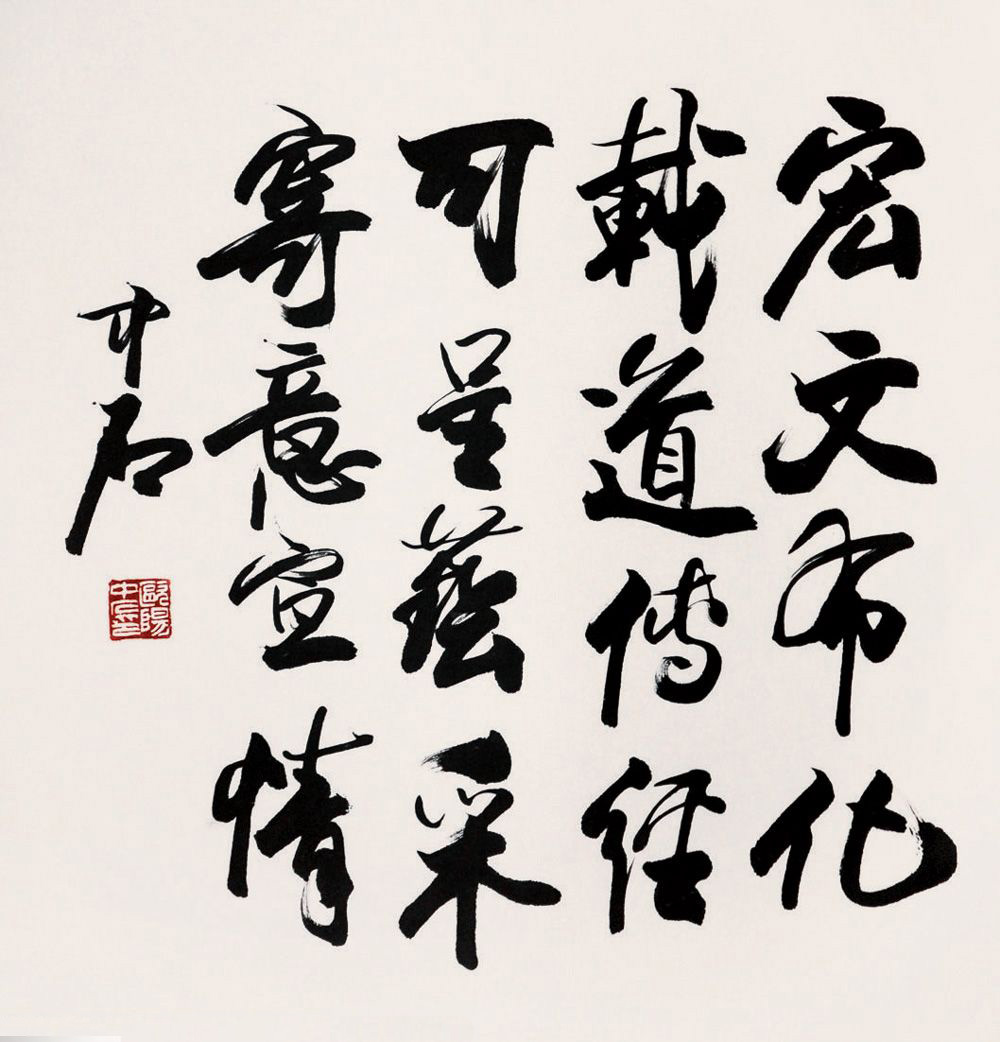 宏文布化
載道傳經
可呈藝采
寄意宣情
中石
歐陽中石印